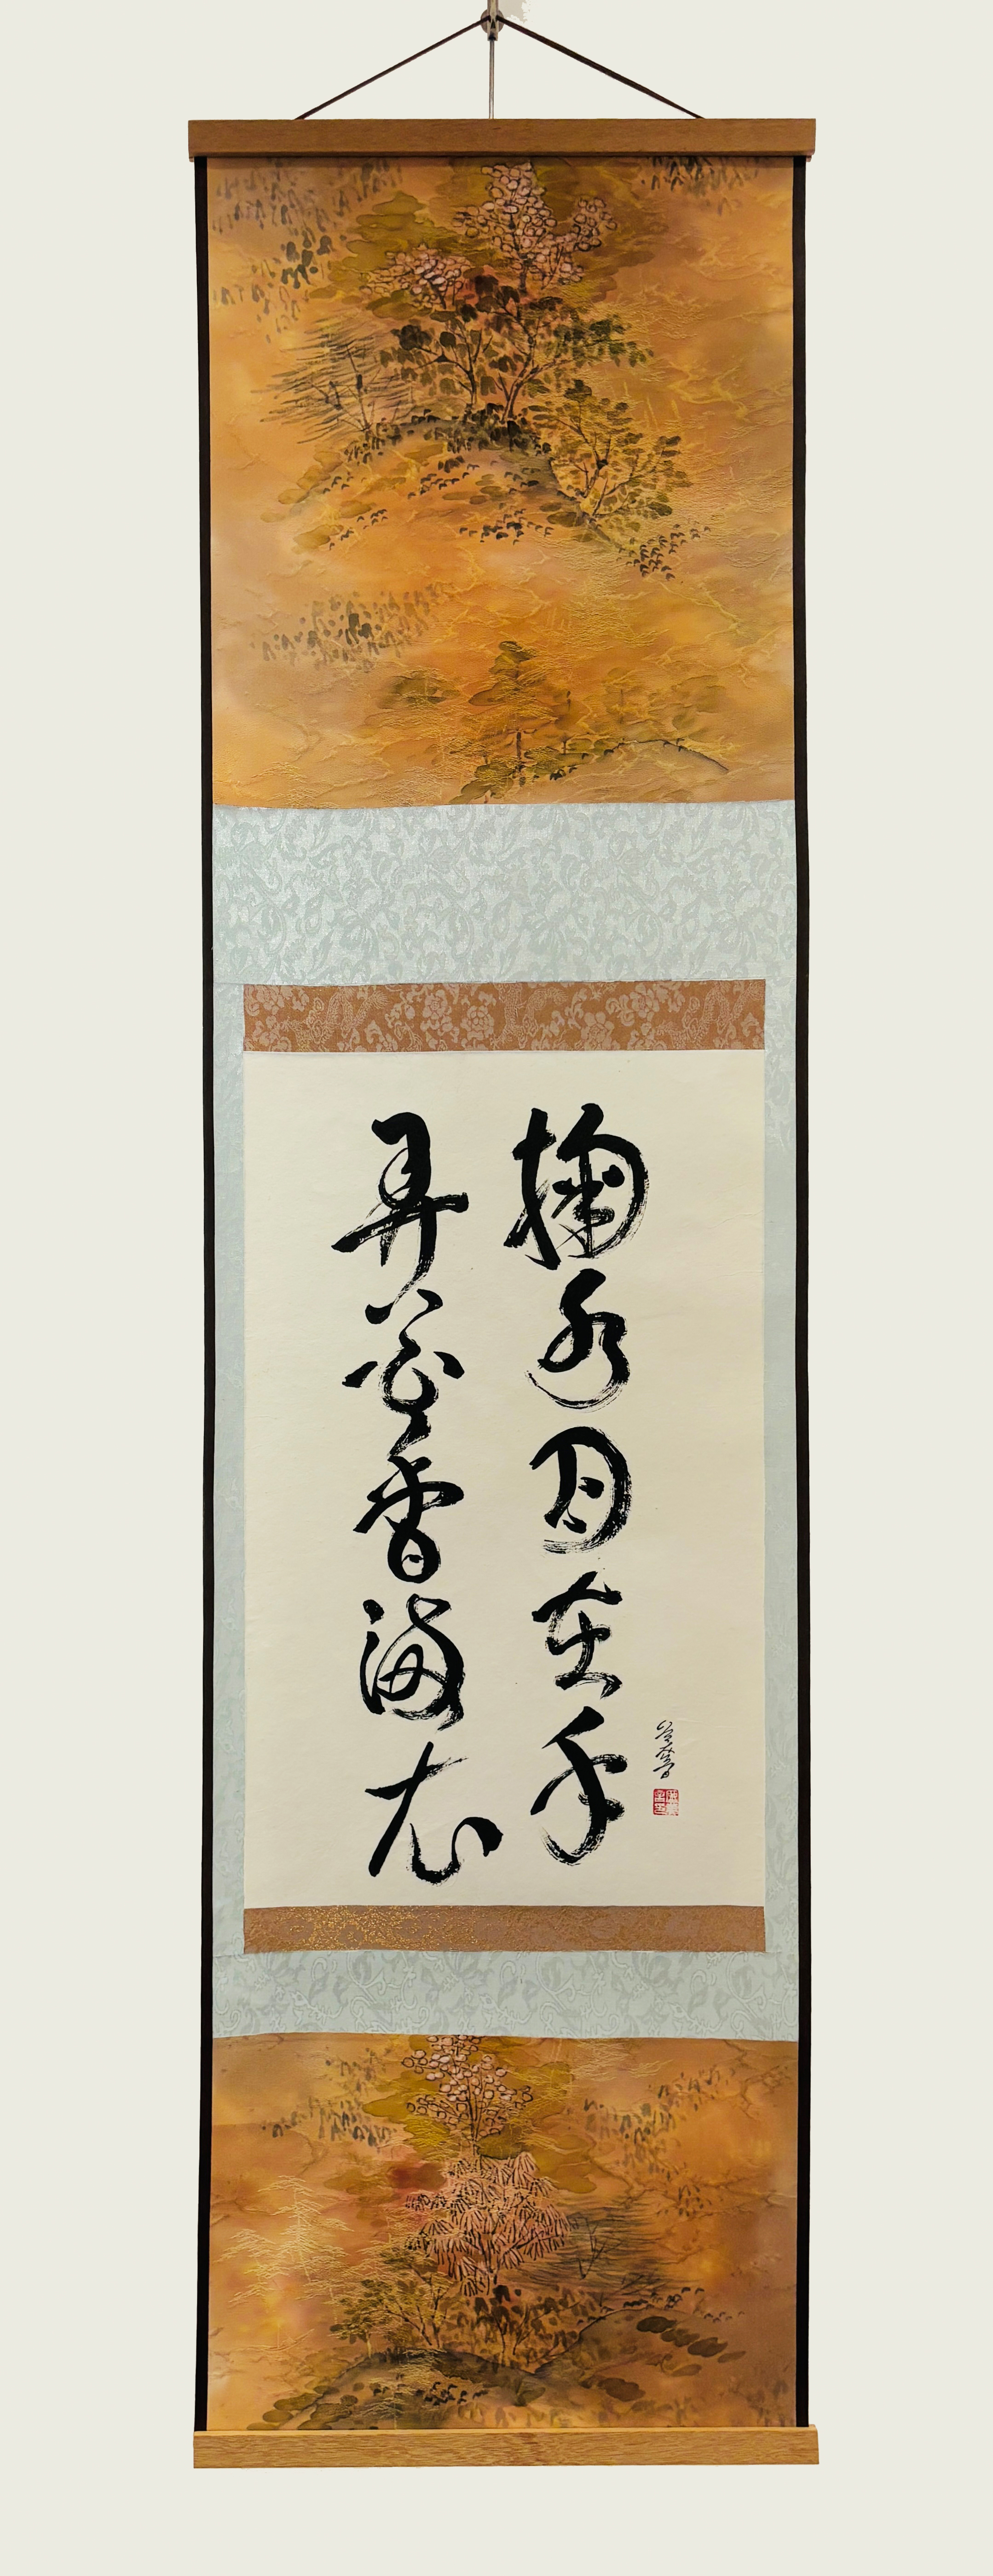 掬水月在手
弄花香満衣